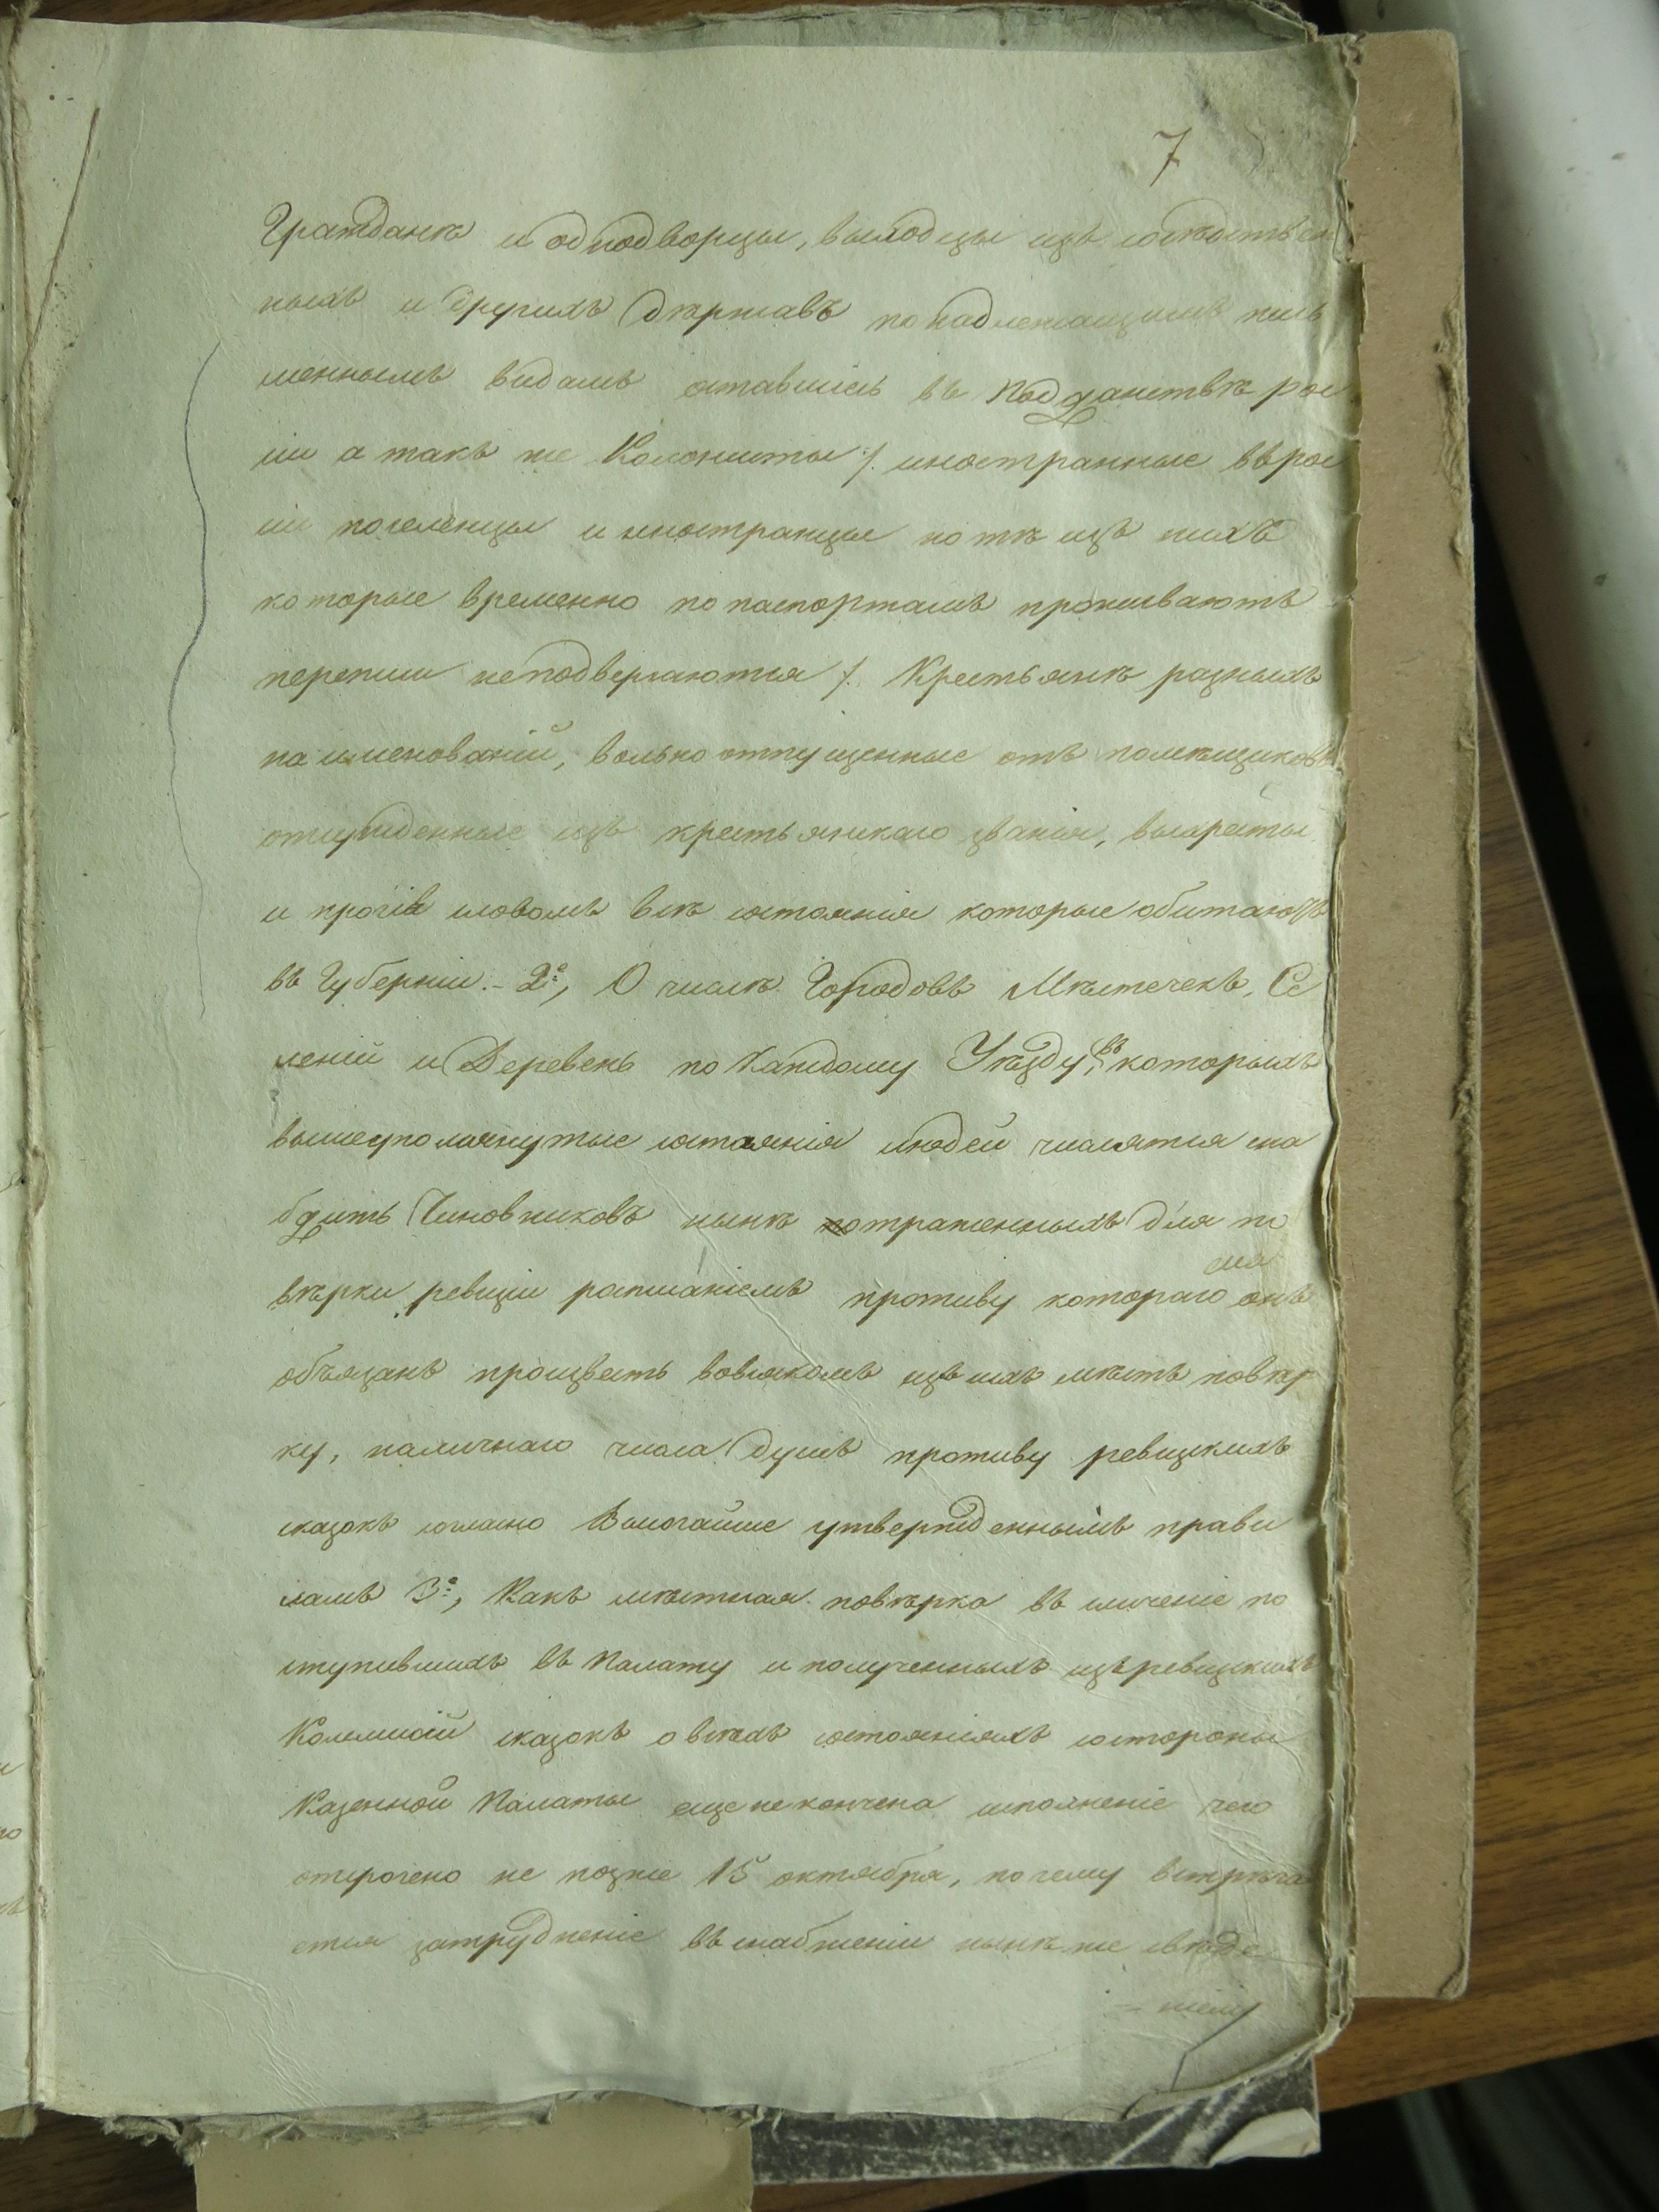 7
Гражданѣ и однодворцы, выходцы изъ сосѣдствен
ныхъ и другихъ Державъ по надлежащимъ пись
меннымъ видамъ оставшіесь въ Подданствѣ рос
іи а такъ же Колонисты /. иностранные въ рос
іи поселенцы и иностранцы но тѣ изъ нихъ
которые временно по паспортамъ проживаютъ
переписи неподвергаются /. Крестьянѣ разныхъ
наименованій, вольно отпущенные отъ помѣщиковъ
отсужденные изъ крестьянскаго званія, выкресты
и прочіе словомъ всѣ состоянія которые обитаютъ
въ Губерніи. - 2е, О числѣ Городовъ Мѣстечекъ, Се
леній и Деревень по Каждому Уѣзду, въ которыхъ
вышеупомянутые состоянія людей числятся сна
бдить Чиновниковъ нынѣ отряженныхъ для по
вѣрки ревизіи росписаніемъ противу котораго онъ
обязанъ произвесть вовсякомъ изъ нихъ мѣстъ повѣр
ку, наличнаго числа душъ противу ревизскихъ
сказокъ согласно Высочайше утвержденнымъ прави
ламъ 3е, Какъ мѣстная повѣрка въ сличеніе по
ступившихъ въ Палату и полученныхъ изъ ревизскихъ
Коммисій сказокъ о всѣхъ состояніяхъ со стороны
Казенной Палаты еще не кончена исполненіе чего
отсрочено не позже 15 октября, по чему встрѣча
ется затрудненіе въ снабженіи нынѣ же свѣде